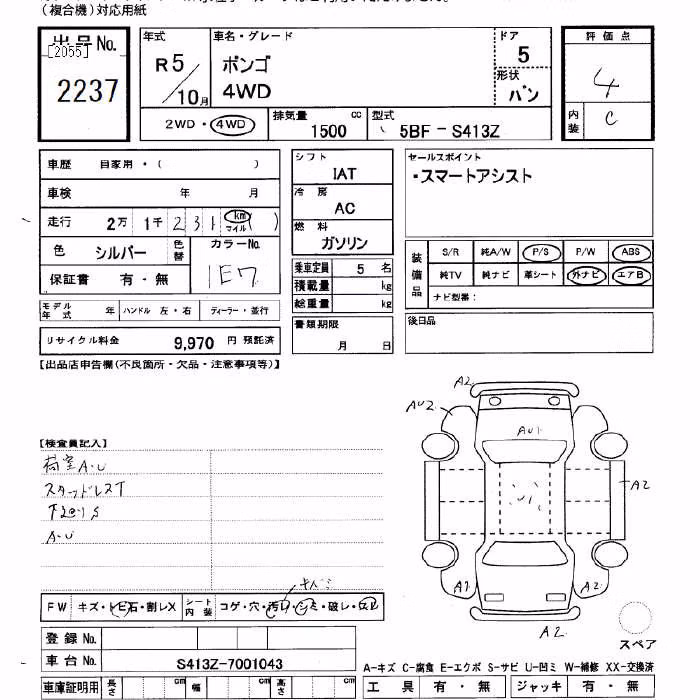 (複合機)対応用紙
出品No.
[2055]
2237
年式
R5/10月
車名・グレード
ボンゴ
4WD
ドア
5
形状
バン
評価点
4
内装
C
2WD・4WD
排気量
1500 cc
型式
5BF - S413Z
車歴 自家用・( )
車検 年 月
走行 2万 1千 231 km マイル ( )
色 シルバー 色替
カラーNo.
1E7
保証書 有・無
モデル年式 年 ハンドル 左・右 ディーラー・並行
リサイクル料金 9,970 円 預託済
シフト
IAT
冷房
AC
燃料
ガソリン
乗車定員 5 名
積載量 kg
総重量 kg
書類期限
月 日
セールスポイント
・スマートアシスト
装備品
S/R 純A/W P/S P/W ABS
純TV 純ナビ 革シート 外ナビ エアB
ナビ型番:
後日品
【出品店申告欄(不良箇所・欠品・注意事項等)】
【検査員記入】
荷室A・U
スタッドレスT
下回りS
A・U
A2
AU2
AU1
A2
A1
A2
A2
スペア
FW キズ・トビ石・割レX シート内装 コゲ・穴・汚レ・シミ・破レ・スレ
キバミ
登録No.
車台No. S413Z-7001043
車庫証明用 長さ cm 幅 cm 高さ cm
A-キズ C-腐食 E-エクボ S-サビ U-凹ミ W-補修 XX-交換済
工具 有・無 ジャッキ 有・無